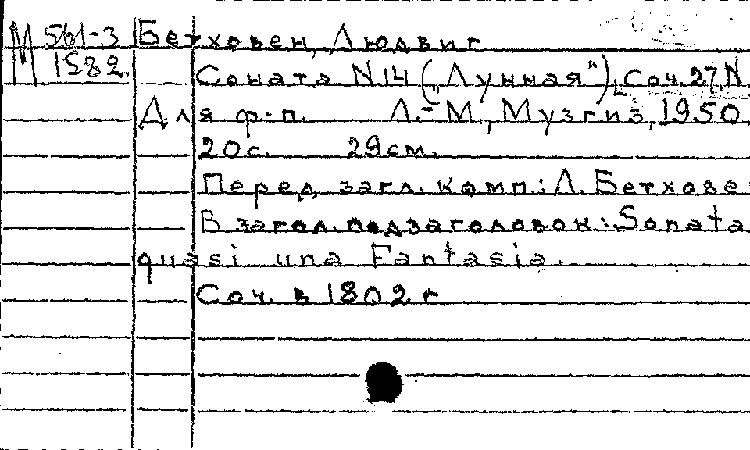 М 561-3 Бетховен, Людвиг
1582.
Соната N 14 („Лунная"), Соч. 27, N
Для ф-п. Л.-М., Музгиз, 1950.
20с. 29см.
Перед загл. комп.: Л. Бетхове
В загол. подзаголовок: Sonata
quasi una Fantasia.
Соч. в 1802 г